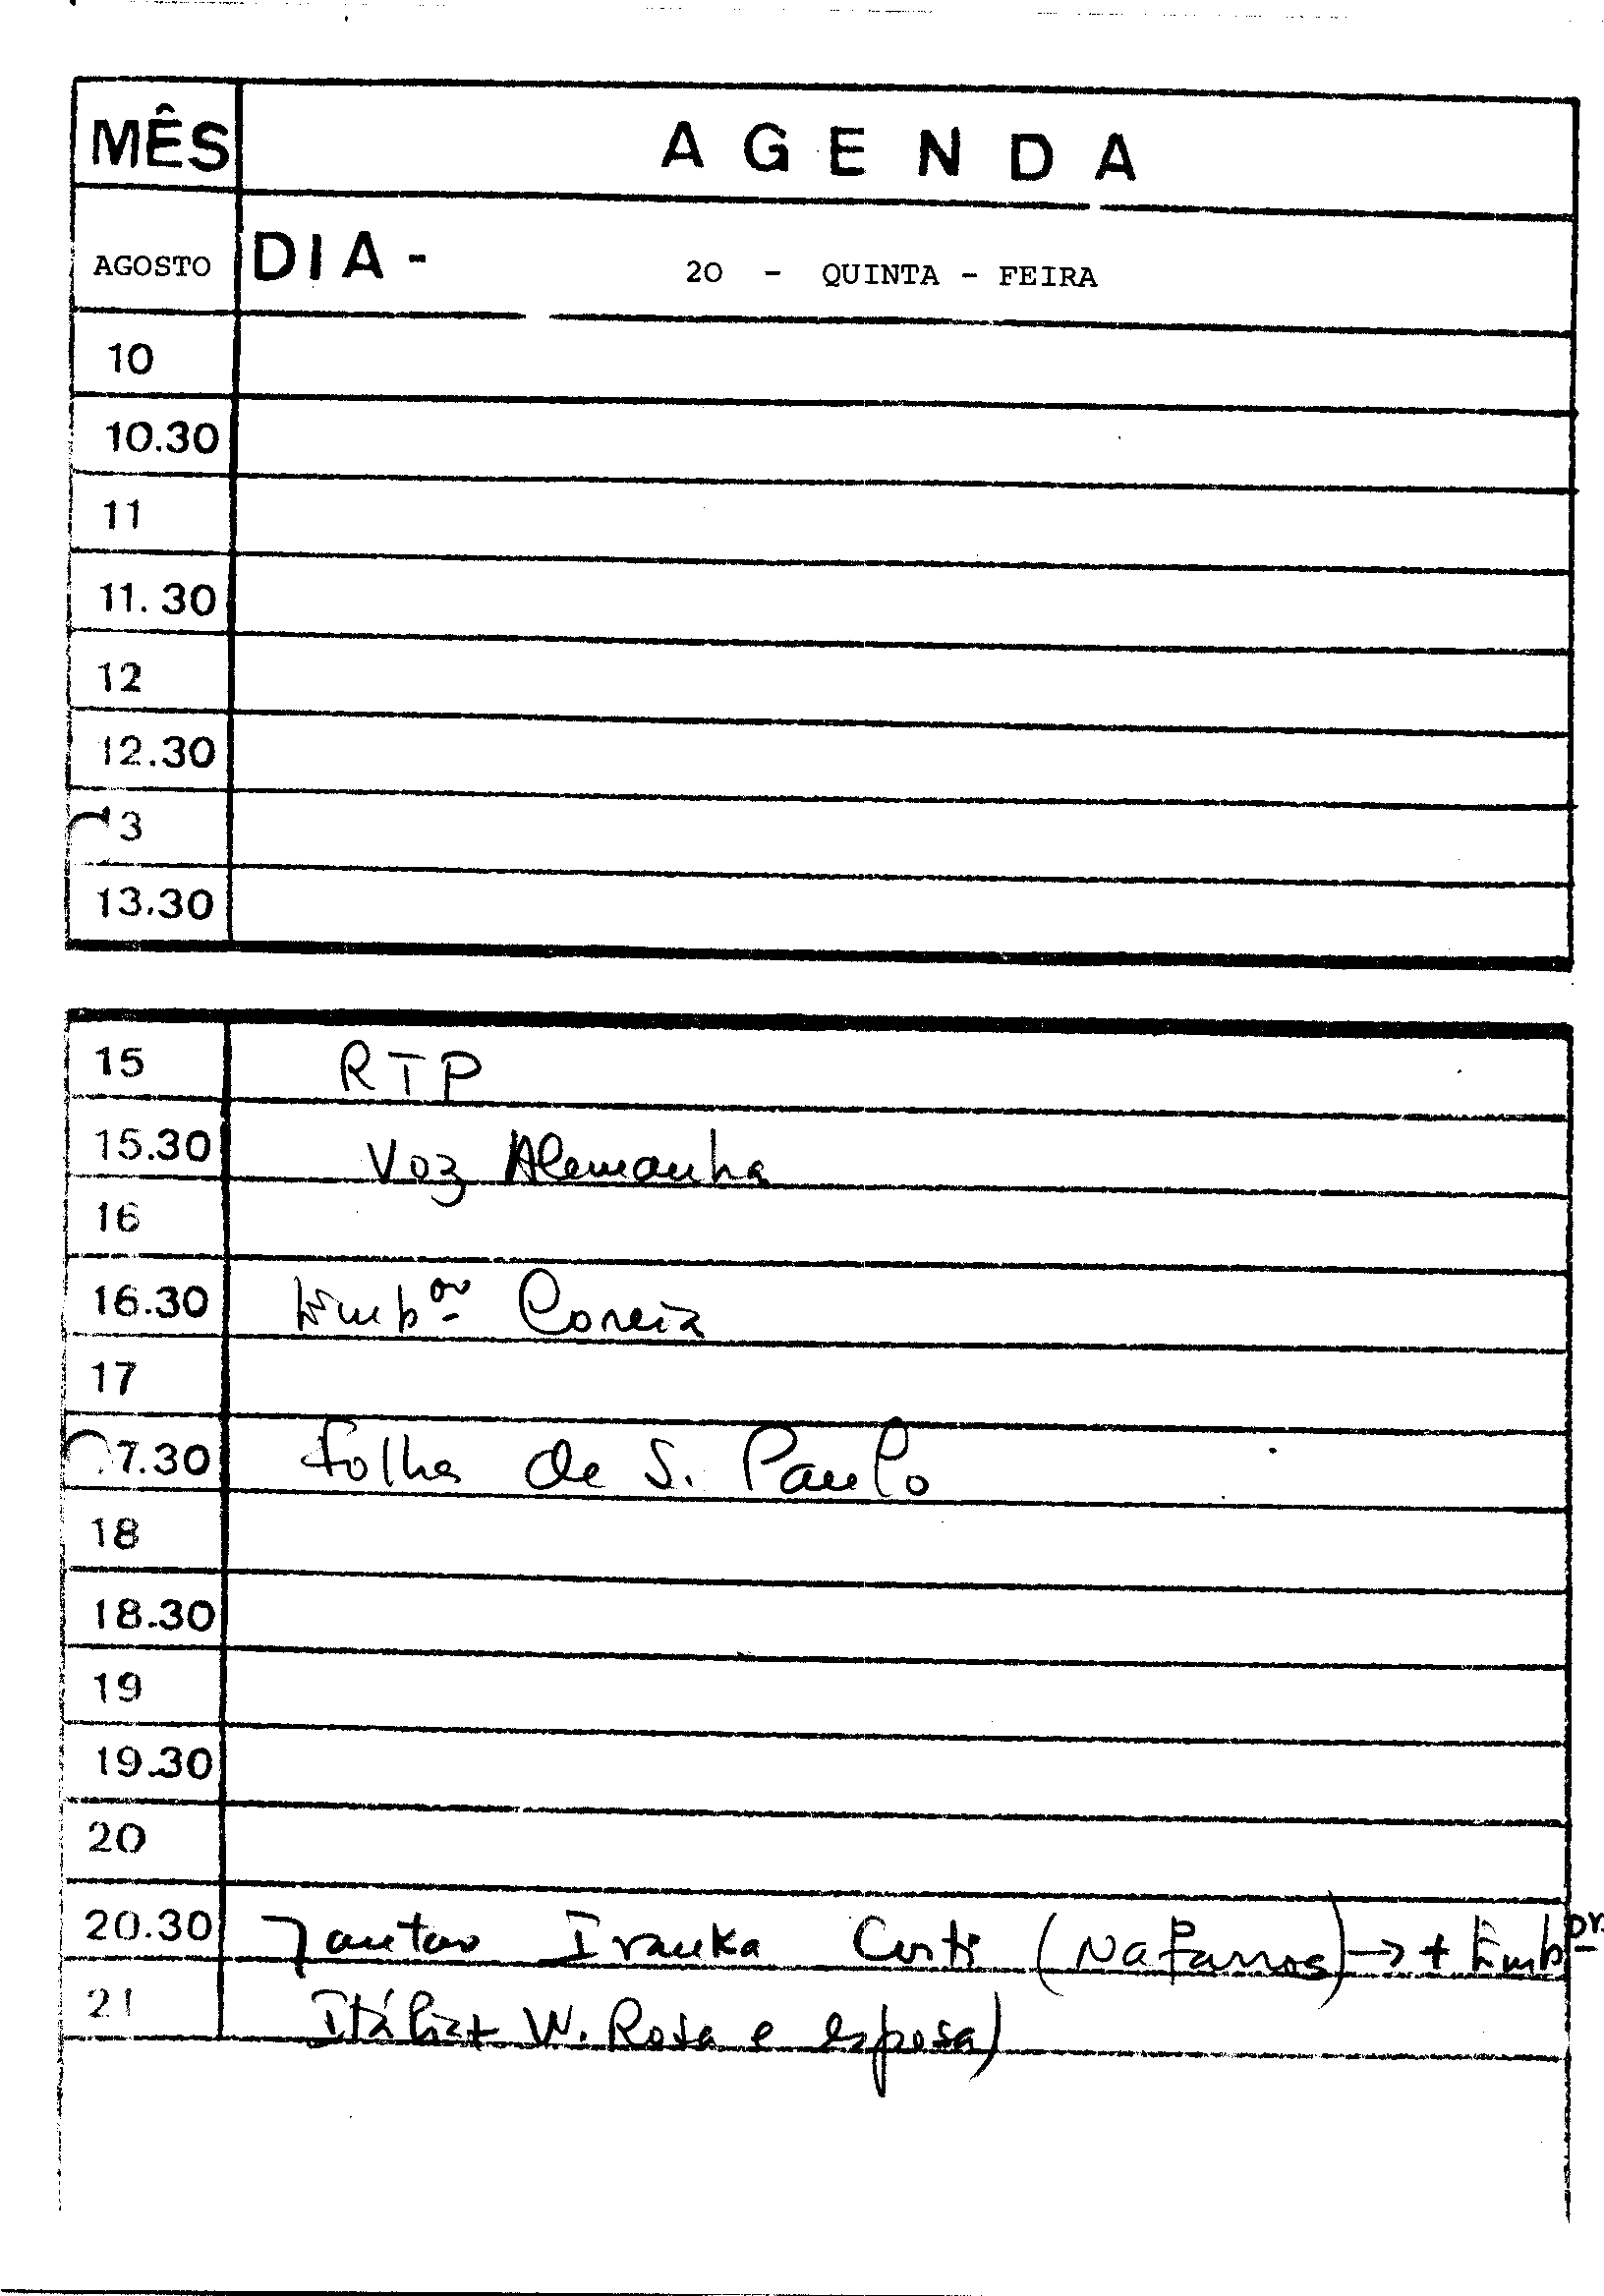 MÊS AGENDA
AGOSTO DIA - 20 - QUINTA - FEIRA
10
10.30
11
11.30
12
12.30
13
13.30
15 RTP
15.30 Voz Alemanha
16
16.30 Embor Coreia
17
17.30 Folha de S. Paulo
18
18.30
19
19.30
20
20.30 Jantar Iranka Corti (Nafarros) → + Embor.
21 Itália + W. Rosa e esposa)